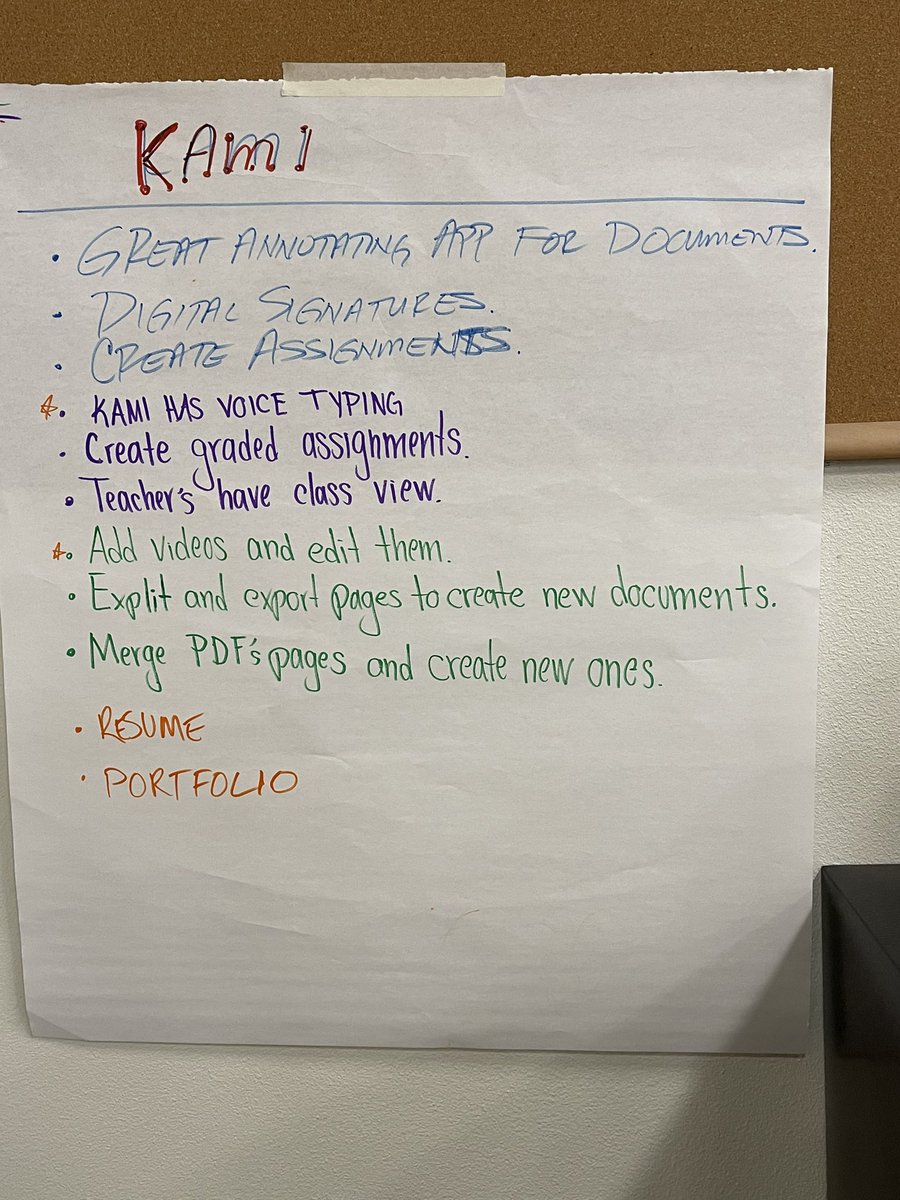 KAMI
· GREAT ANNOTATING APP FOR DOCUMENTS.
· DIGITAL SIGNATURES.
· CREATE ASSIGNMENTS.
☆· KAMI HAS VOICE TYPING
· Create graded assignments.
· Teacher's have class view.
☆· Add videos and edit them.
· Explit and export pages to create new documents.
· Merge PDF's pages and create new ones.
· RESUME
· PORTFOLIO